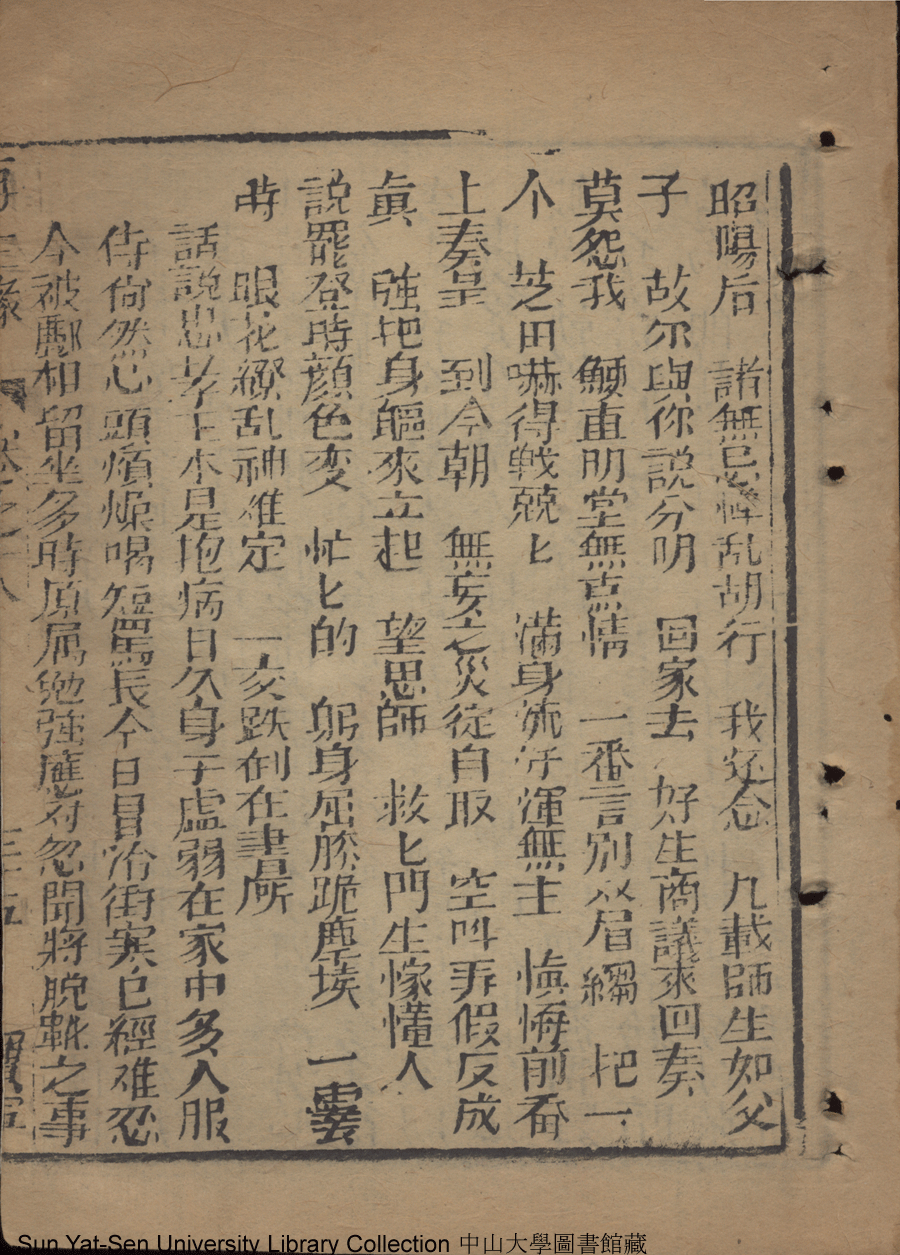 昭陽后　諸無忌憚乱胡行　我还念　九載師生如父
子　故尔與你説分明　回家去　好生商議來回奏
莫怨我　鯁直明堂無点情　一番言別双眉縐　把一
个　芝田嚇得戰兢匕　滿身流汗渾無主　慎悔前番
上奏呈　到今朝　無妄之災從自取　空叫弄假反成
眞　強把身軀來立起　望恩師　救匕門生懞懂人
説罷登時顔色变　忙匕的　躬身屈膝跪塵埃　一霎
時　眼花繚乱神难定　一交跌倒在書房
話説忠孝王本是抱病日久身子虛弱在家中多人服
侍尙然心頭煩燥喝短罵長今日冒冷衝寒已經难忍
今被酈相留坐多時原属勉強應对忽聞將脫靴之事
卷之十八
Sun Yat-Sen University Library Collection 中山大學圖書館藏